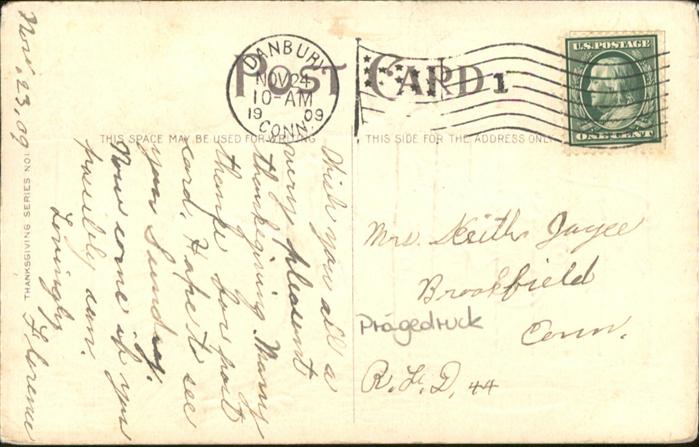 POST CARD
DANBURY,
NOV 24
10-AM
1909
CONN.
1
U.S. POSTAGE
ONE CENT
THIS SPACE MAY BE USED FOR WRITING
THIS SIDE FOR THE ADDRESS ONLY
THANKSGIVING SERIES NO.
Nov. 23, 09
Wish you all a
very pleasent
thanksgiving. Many
thanks for post
card. Hope to see
you Sunday.
Now come if you
possibly can.
Lovingly
Florence
Mrs. Keith Joyce
Brookfield
Conn.
R.F.D. 44
Prägedruck